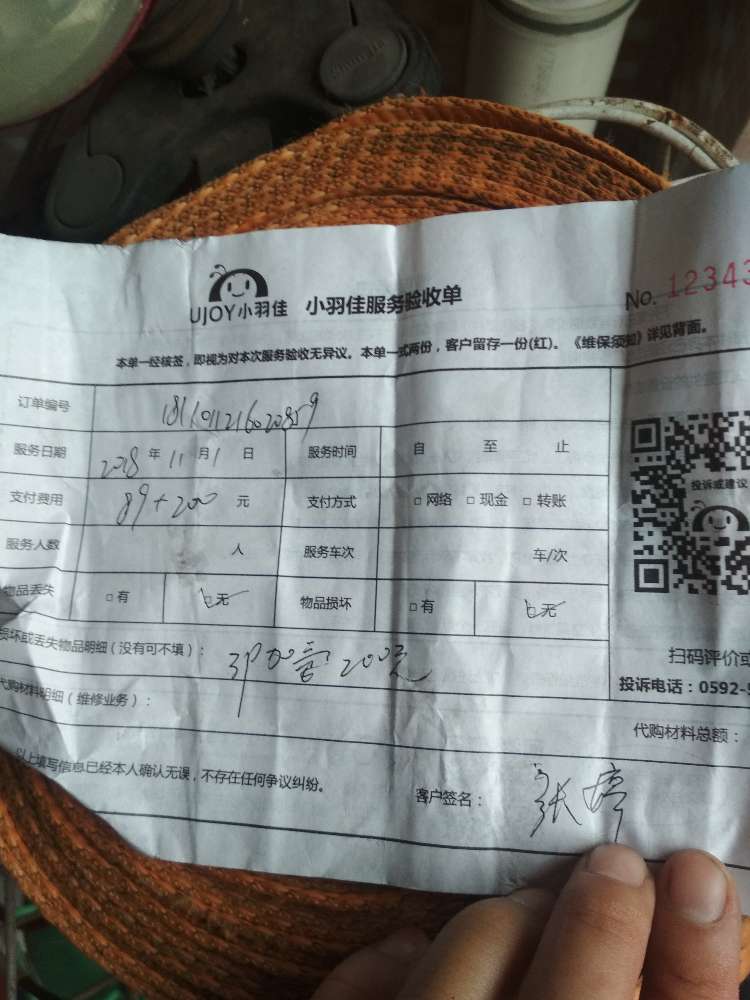 Shimano
UJOY小羽佳 小羽佳服务验收单 No. 12343
本单一经核签，即视为对本次服务验收无异议。本单一式两份，客户留存一份(红)。《维保须知》详见背面。
订单编号
服务日期 2018 年 11 月 1 日 服务时间 自 至 止
支付费用 89+200 元 支付方式 □ 网络 □ 现金 □ 转账
投诉或建议
服务人数 人 服务车次 车/次
物品丢失 □ 有 □ 无 物品损坏 □ 有 □ 无
损坏或丢失物品明细（没有可不填）： 200元
扫码评价或
代购材料明细（维修业务）： 投诉电话：0592-
代购材料总额：
以上填写信息已经本人确认无误，不存在任何争议纠纷。 客户签名： 张婷